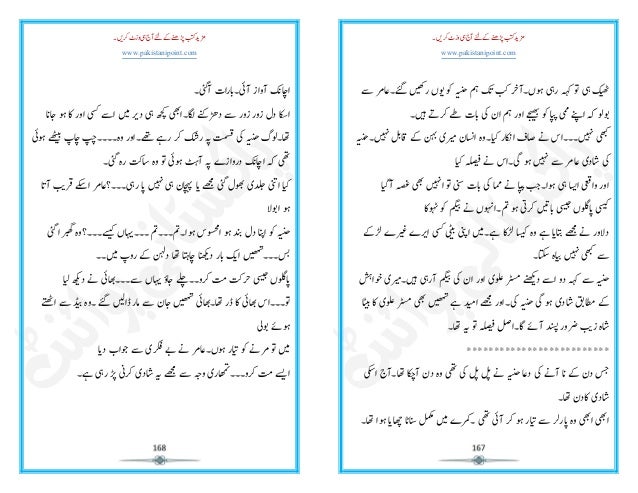 مزید کتب پڑھنے کے لئے آج ہی وزٹ کریں۔
www.pakistanipoint.com
ٹھیک ہی تو کہہ رہی ہوں۔آخر کب تک ہم حنیہ کو یوں رکھیں گئے۔عامر سے
بولو کہ اپنے ممی پاپا کو بھیجے اور ہم ان کی بات طے کرتے ہیں۔
کبھی نہیں۔۔۔اس نے صاف انکار کیا۔وہ انسان میری بہن کے قابل نہیں۔حنیہ
کی شادی عامر سے نہیں ہو گی۔اس نے فیصلہ کیا
اور واقعی ایسا ہی ہوا۔جب پاپا نے مما کی بات سنی تو انہیں بھی غصہ آگیا
کیسی پاگلوں جیسی باتیں کرتی ہو تم۔انہوں نے بیگم کو ٹہوکا
دلاور نے مجھے بتایا ہے وہ کیسا لڑکا ہے۔میں اپنی بیٹی کسی ایرے غیرے لڑکے
سے کبھی نہیں بیاہ سکتا۔
حنیہ سے کہہ دو اسے دیکھنے مسٹر علوی اور ان کی بیگم آرہیں ہیں۔میری خواہش
کے مطابق شادی ہو گی حنیہ کی۔اور مجھے امید ہے تمھیں بھی مسٹر علوی کا بیٹا
شاہ زیب ضرور پسند آئے گا۔اصل فیصلہ یہ تھا۔
************************
جس دن کے نا آنے کی دعا حنیہ نے پل پل کی تھی وہ دن آچکا تھا۔آج اسکی
شادی کادن تھا۔
ابھی ابھی وہ پارلر سے تیار ہو کر آئی تھی ۔کمرے میں مکمل سناٹا چھایا ہوا تھا۔
167
مزید کتب پڑھنے کے لئے آج ہی وزٹ کریں۔
www.pakistanipoint.com
اچانک آواز آئی۔بارات آگئی۔
اسکا دل زور زور سے دھڑکنے لگا۔ابھی کچھ ہی دیر میں اسے کسی اور کا ہو جانا
تھا۔لوگ حنیہ کی قسمت پہ رشک کر رہے تھے۔اور وہ۔۔۔۔چپ چاپ بیٹھے ہوئی
تھی کہ اچانک دروازے پہ آہٹ ہوئی تو وہ ساکت رہ گئی۔
کیا اتنی جلدی بھول گئی مجھے یا پہچان ہی نہیں پا رہی۔۔۔؟عامر اسکے قریب آتا
ہوا بولا
حنیہ کو اپنا دل بند ہو تا محسوس ہوا۔تم۔۔۔تم ۔۔۔یہاں کیسے۔۔۔؟وہ گھبرا گئی
بس۔۔۔تمھیں ایک بار دیکھنا چاہتا تھا دلہن کے روپ میں۔۔
پاگلوں جیسی حرکت مت کرو۔۔چلے جاؤ یہاں سے۔۔۔بھائی نے دیکھ لیا
تو۔۔۔اس بھائی کا ڈر تھا۔بھائی تمھیں جان سے مار ڈالیں گئے ۔وہ بیڈ سے اٹھتے
ہوئے بولی
میں تو مرنے کو تیار ہوں۔عامر نے بے فکری سے جواب دیا
ایسے مت کرو۔۔۔تمھاری وجہ سے مجھے یہ شادی کرنی پڑ رہی ہے۔
168